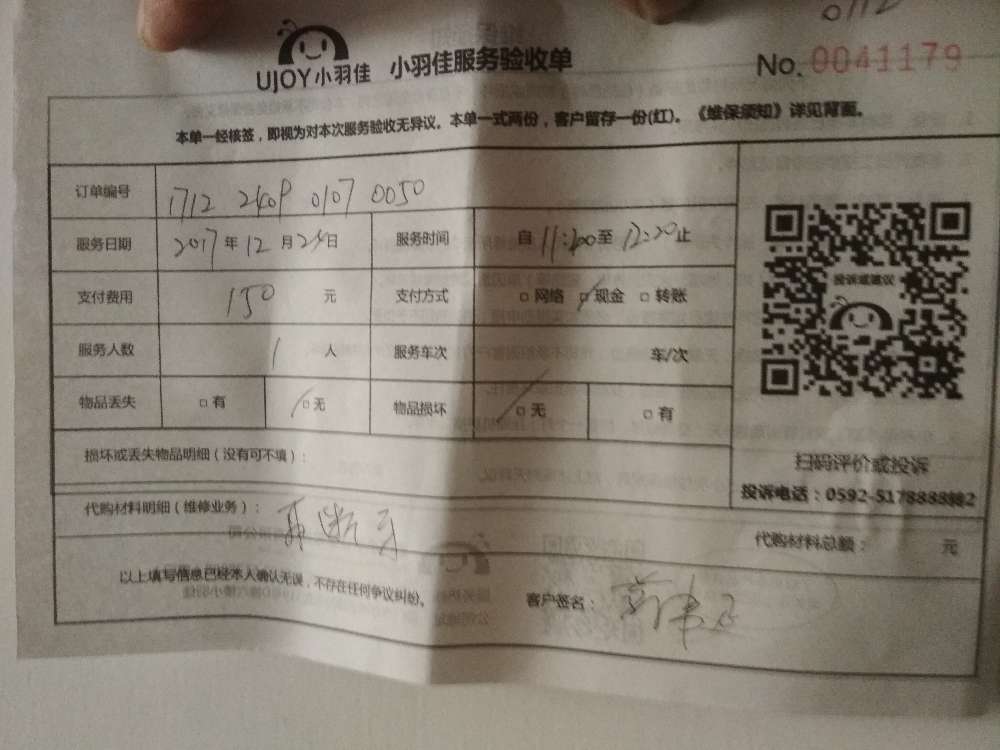 0112
UJOY小羽佳 小羽佳服务验收单 No. 0041179
本单一经核签，即视为对本次服务验收无异议。本单一式两份，客户留存一份(红)。《维保须知》详见背面。
订单编号 1712 2409 0107 0050
服务日期 2017年12月24日 服务时间 自11:20至12:20止
支付费用 150 元 支付方式 □网络 □现金 □转账
服务人数 1 人 服务车次 车/次
物品丢失 □有 □无 物品损坏 □无 □有
投诉或建议
损坏或丢失物品明细（没有可不填）：
扫码评价或投诉
投诉电话：0592-5178888转2
代购材料明细（维修业务）：
代购材料总额： 元
以上填写信息已经本人确认无误，不存在任何争议纠纷。 客户签名：